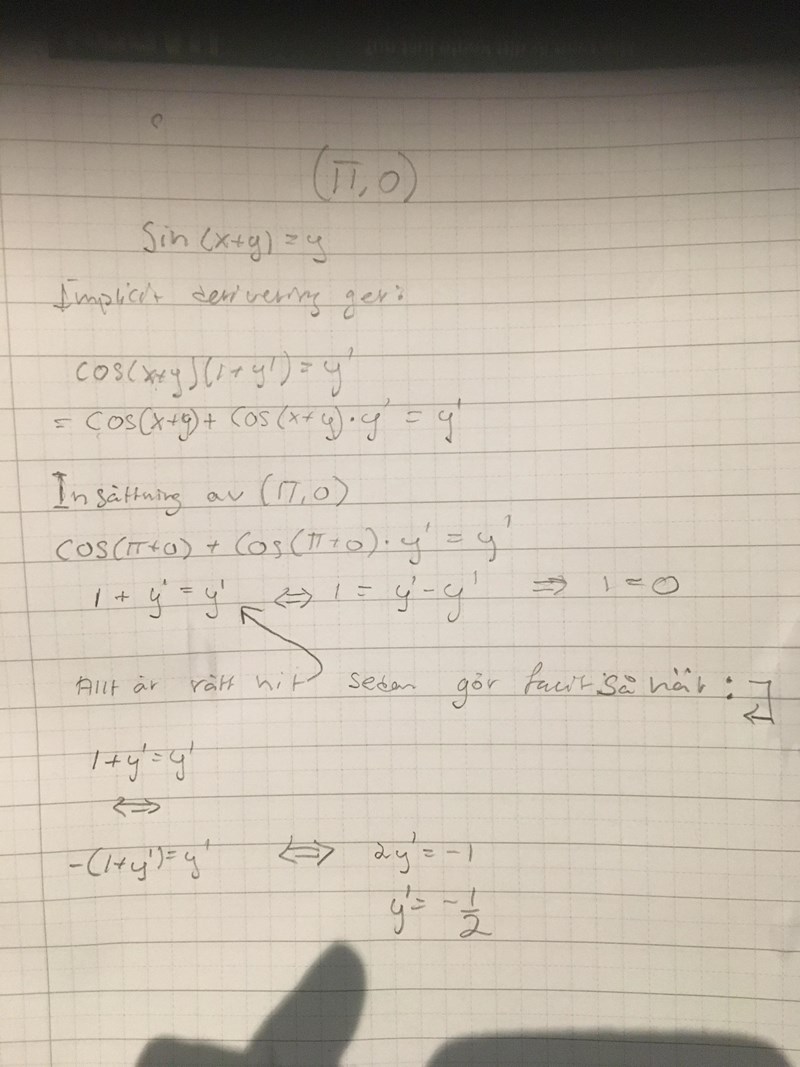 (π,0)
Sin(x+y)=y
Implicit derivering ger:
cos(x+y)(1+y')=y'
= cos(x+y)+ cos(x+y)·y' = y'
Insättning av (π,0)
cos(π+0) + cos(π+0)·y' = y'
1 + y' = y' ⇔ 1 = y'-y' ⇒ 1=0
Allt är rätt hit sedan gör facit så här:
1+y'=y'
⇔
-(1+y')=y' ⇔ 2y'=-1
y'= -1/2